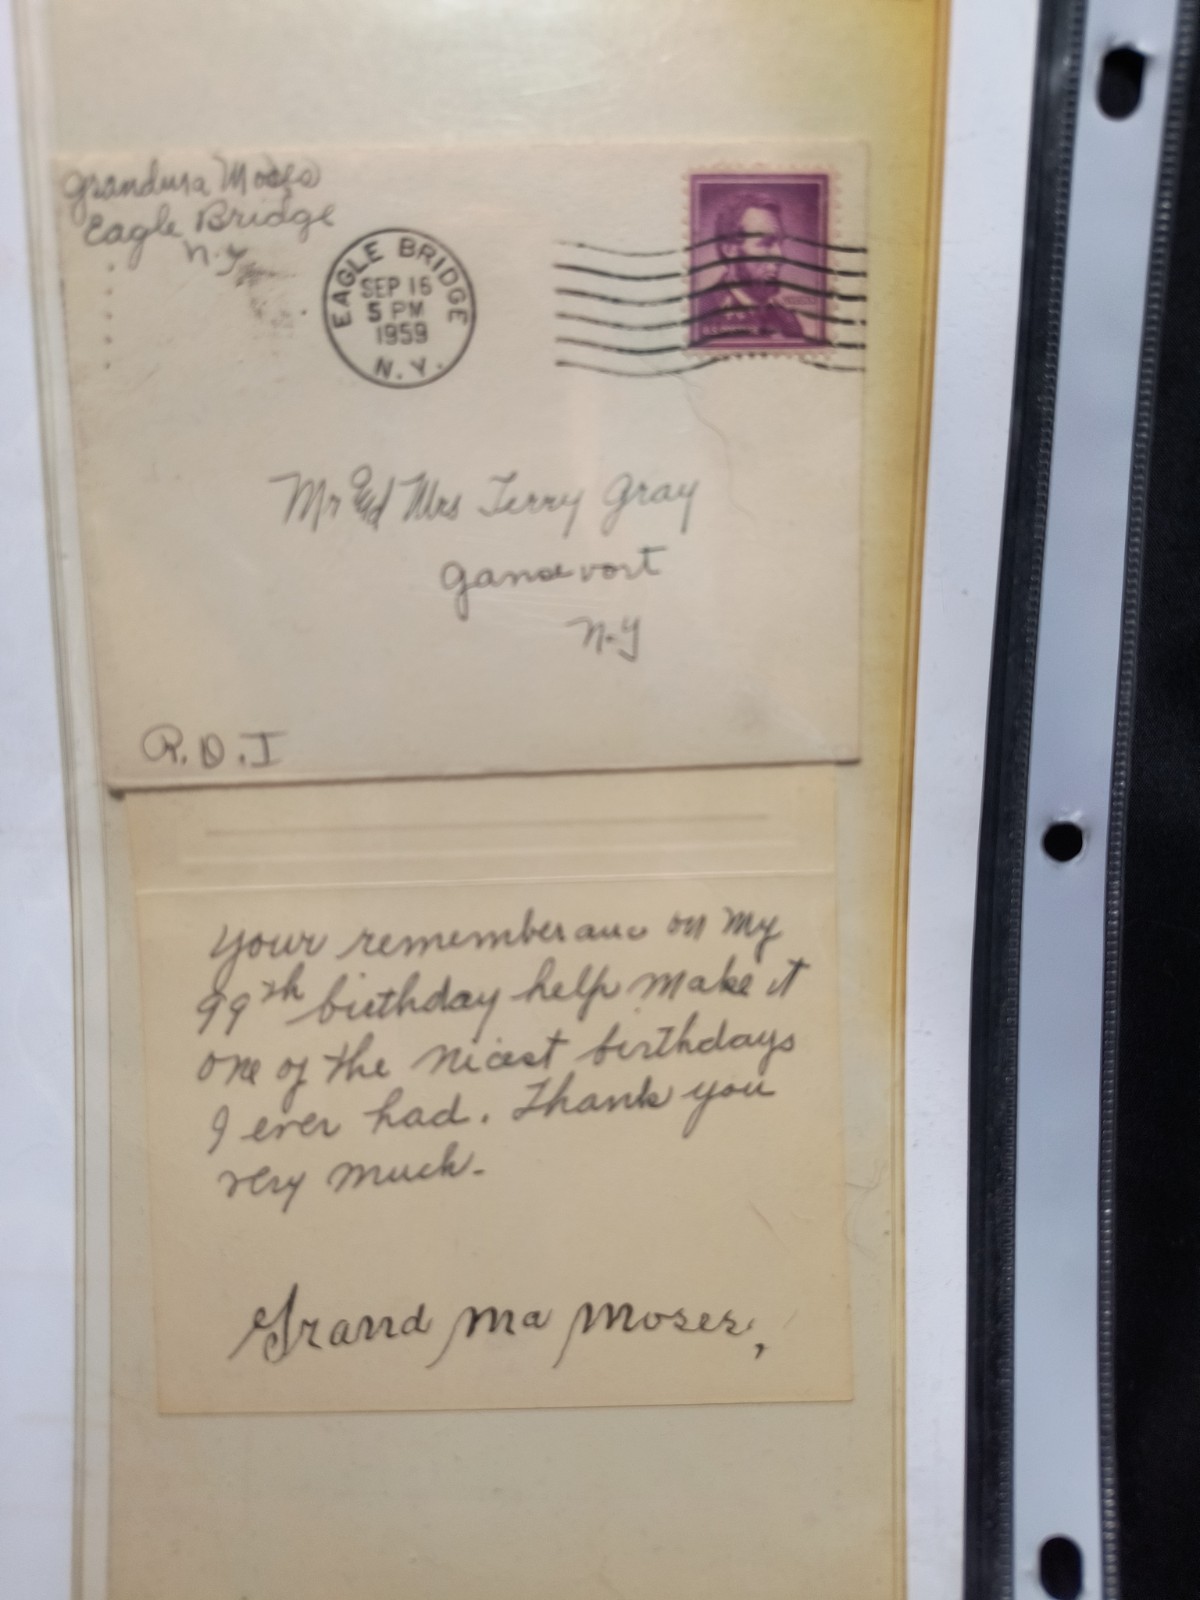 Grandma Moses
Eagle Bridge
N.Y.
EAGLE BRIDGE
SEP 16
5 PM
1959
N.Y.
Mr and Mrs Terry Gray
Gansevort
N.Y
R.D.I
Your rememberance on my
99th birthday help make it
one of the nicest birthdays
I ever had. Thank you
very much.
Grand Ma Moses,